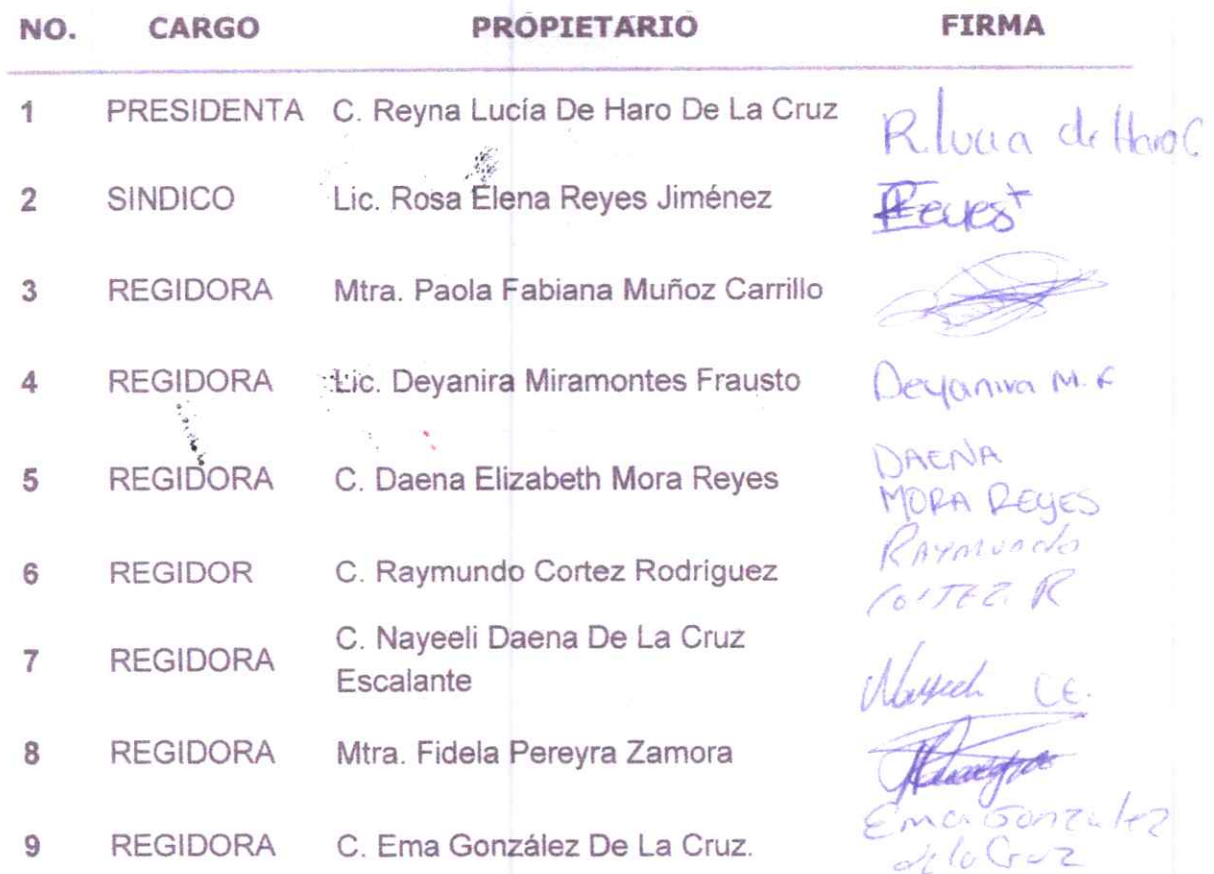 NO. CARGO PROPIETARIO FIRMA
1 PRESIDENTA C. Reyna Lucía De Haro De La Cruz R. lucia de Haro C
2 SINDICO Lic. Rosa Elena Reyes Jiménez Reyes
3 REGIDORA Mtra. Paola Fabiana Muñoz Carrillo
4 REGIDORA Lic. Deyanira Miramontes Frausto Deyanira M. F
5 REGIDORA C. Daena Elizabeth Mora Reyes DAENA
MORA REYES
6 REGIDOR C. Raymundo Cortez Rodríguez RAYMUNDO
CORTEZ R
7 REGIDORA C. Nayeeli Daena De La Cruz
Escalante C.E.
8 REGIDORA Mtra. Fidela Pereyra Zamora
9 REGIDORA C. Ema González De La Cruz. Ema Gonzalez
de la Cruz